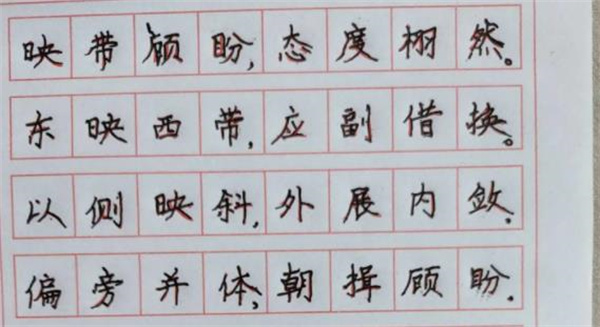 映带顾盼,态度栩然。
东映西带,应副借换。
以侧映斜,外展内敛.
偏旁并体,朝揖顾盼.